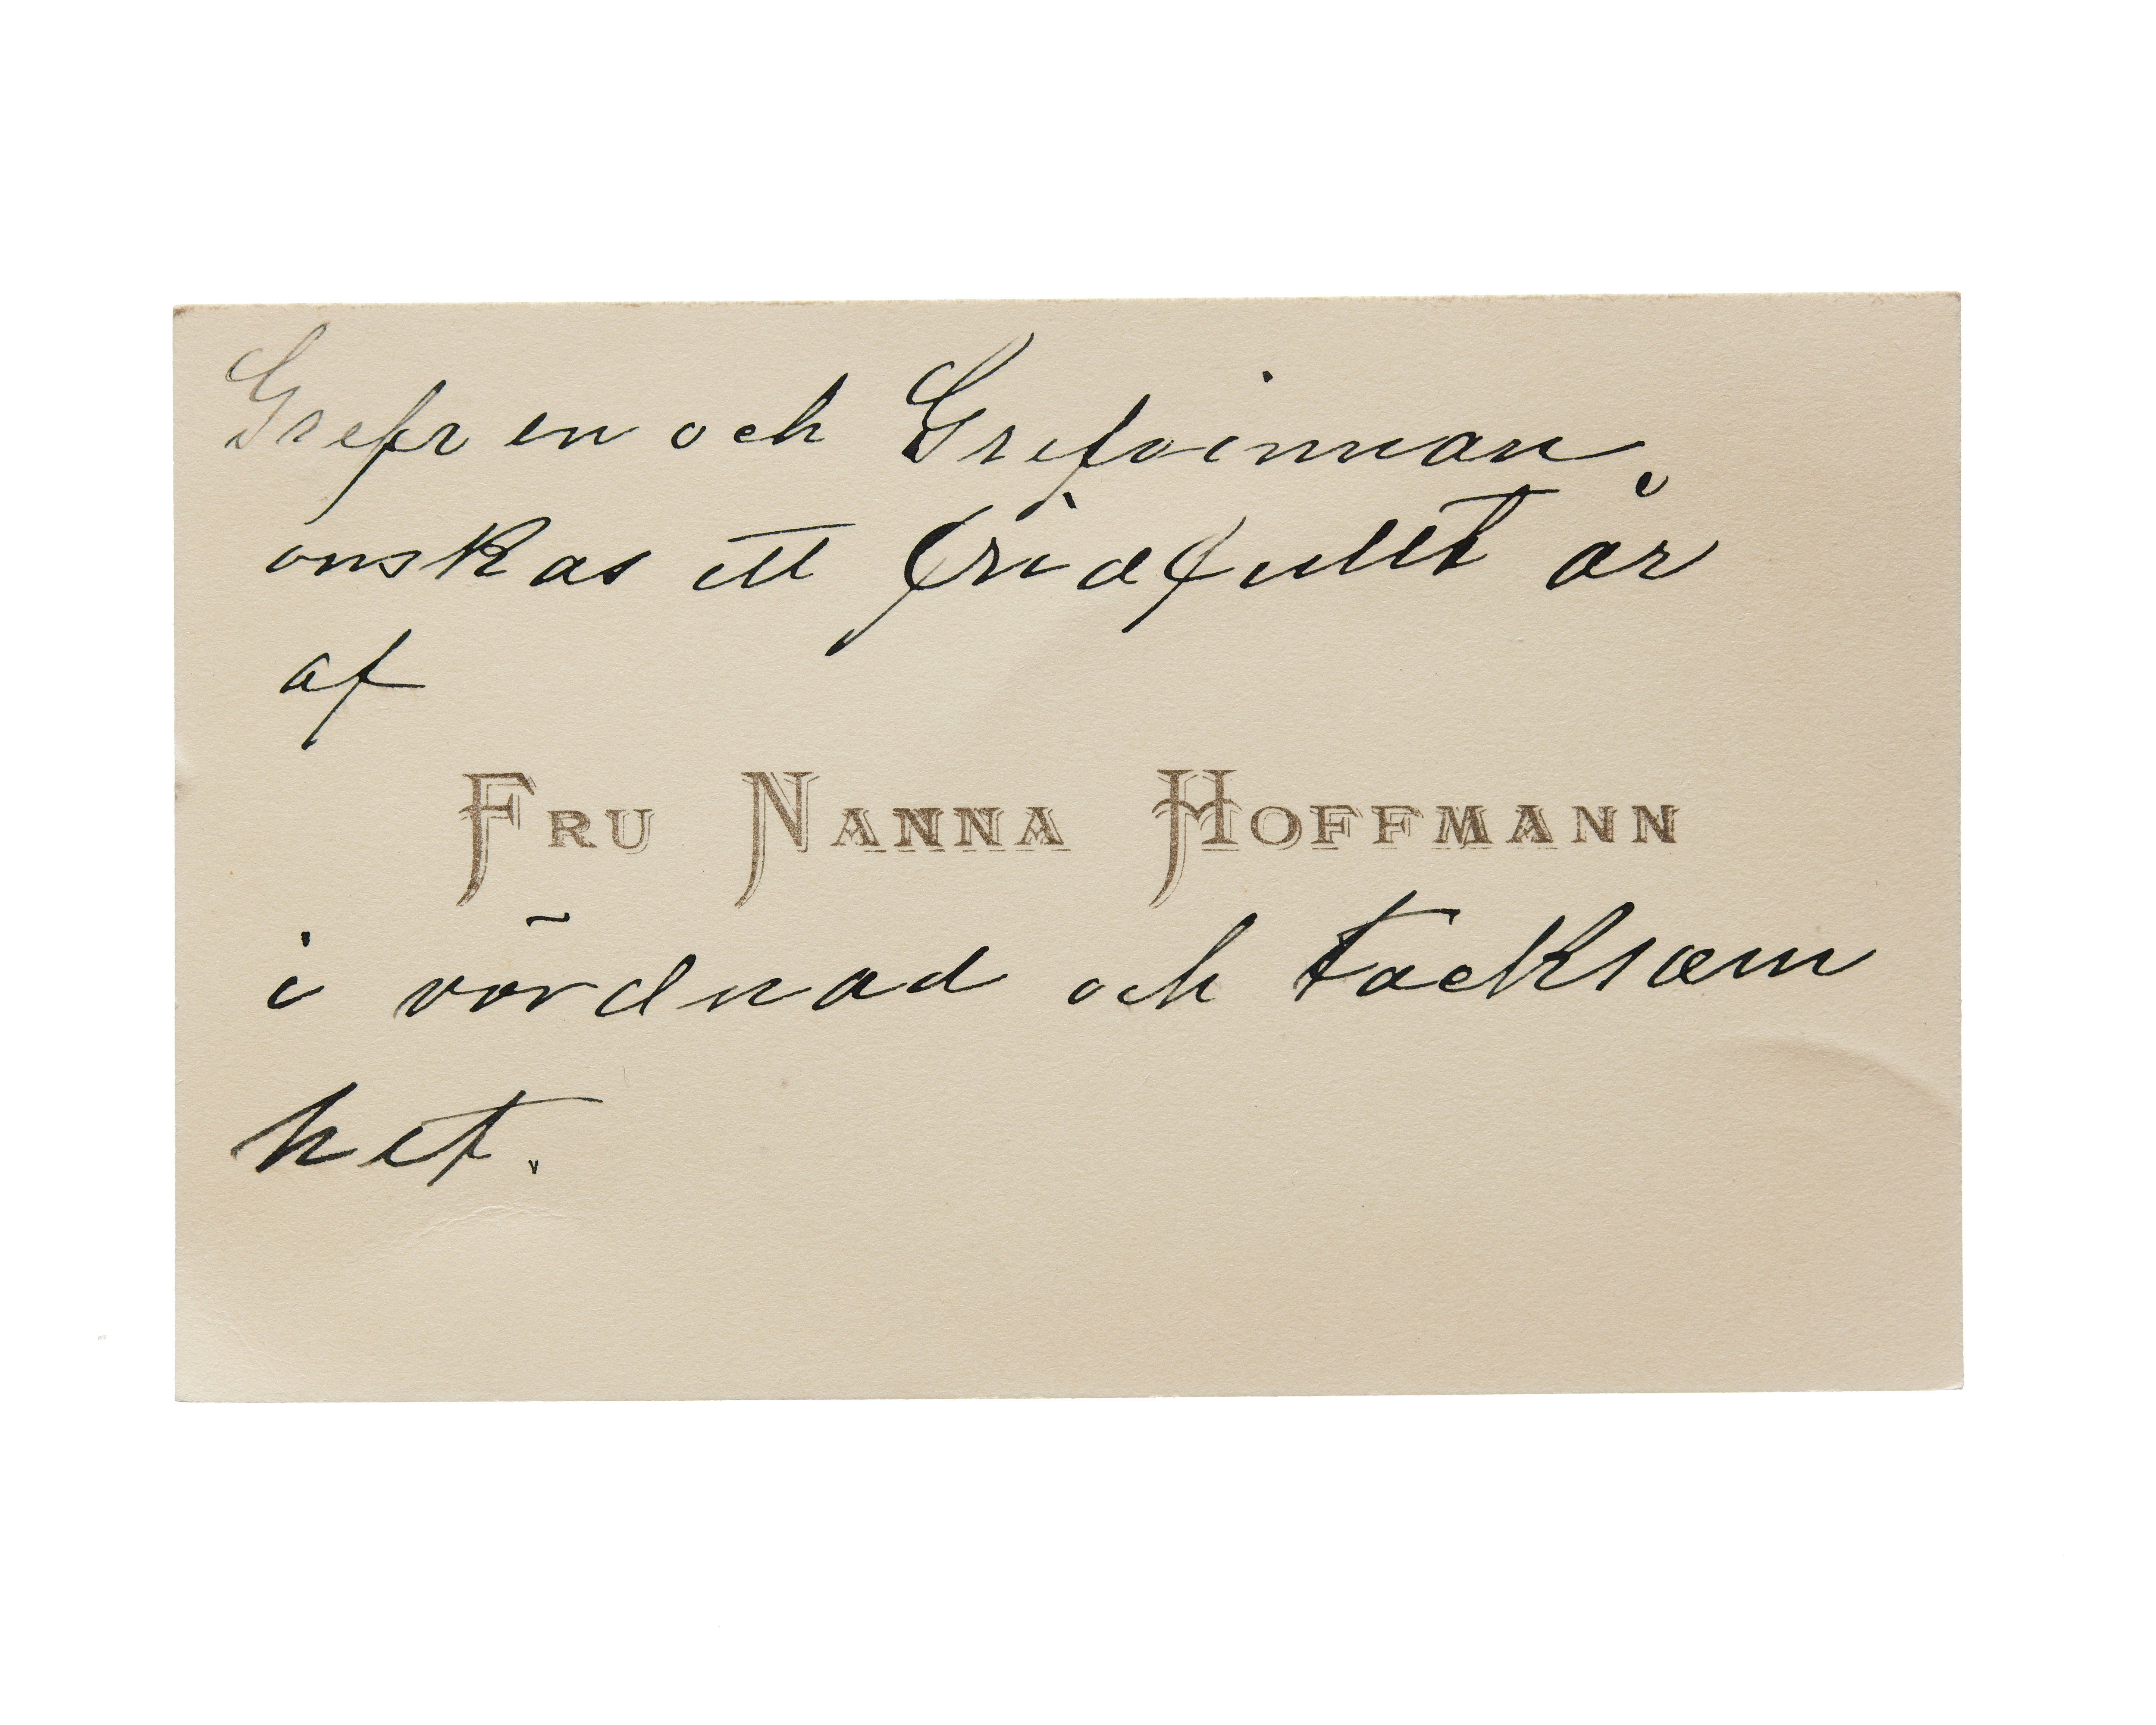 Grefven och Grefvinnan
onskas ett fridfullt år
af
FRU NANNA HOFFMANN
i vördnad och tacksam
het.